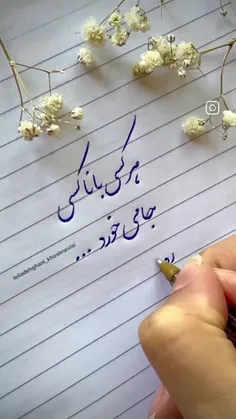 هر کسی با ناکسی
جامی خورد ...
رو
leiladehghani_khoshnevisi